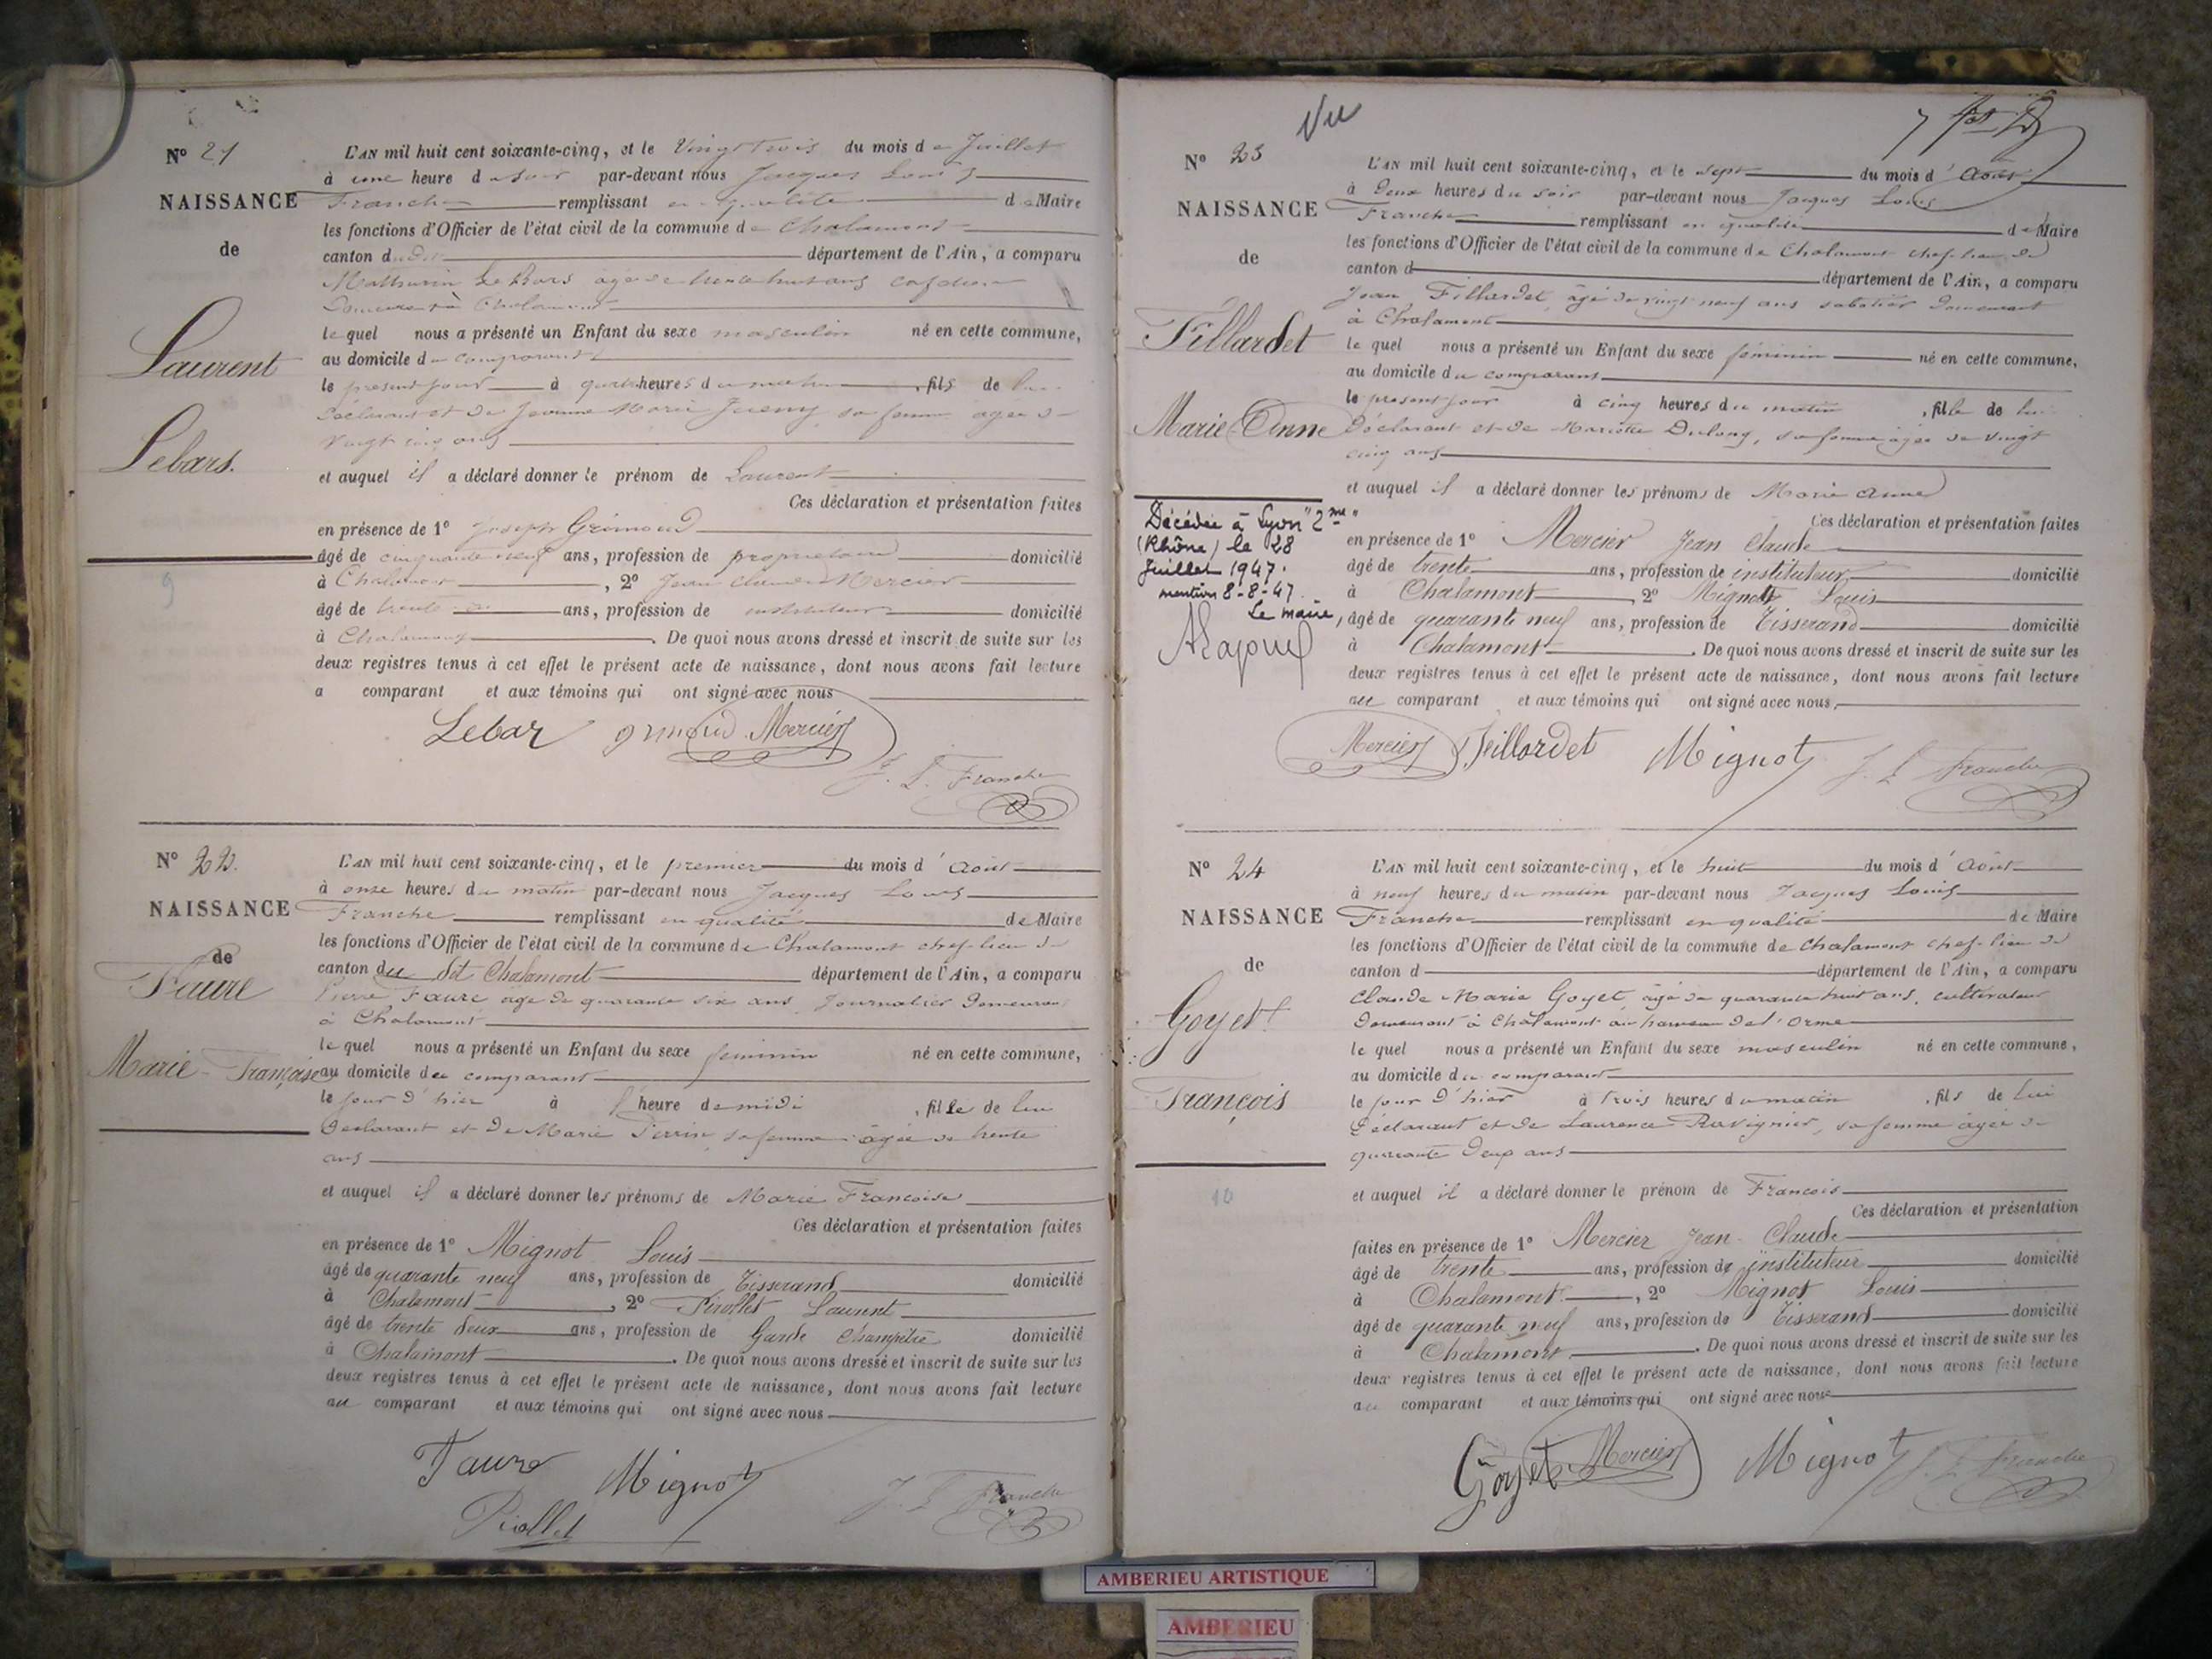 N° 21
NAISSANCE
de
Laurent
Lebars.
9
L'AN mil huit cent soixante-cinq, et le Vingt trois du mois de Juillet
à une heure du soir par-devant nous Jacques Louis
Franche remplissant en qualité de Maire
les fonctions d'Officier de l'état civil de la commune de Chalamont
canton du dit département de l'Ain, a comparu
Mathurin Le Bars âgé de trente huit ans
à Chalamont
le quel nous a présenté un Enfant du sexe masculin né en cette commune,
au domicile du comparant
le présent jour à quatre heures du matin, fils de lui
déclarant et de Jeanne Marie sa femme âgée de
vingt cinq ans
et auquel il a déclaré donner le prénom de Laurent
Ces déclaration et présentation faites
en présence de 1° Joseph Grimaud
âgé de cinquante neuf ans, profession de propriétaire domicilié
à Chalamont, 2° Jean Claude Mercier
âgé de trente ans, profession de instituteur domicilié
à Chalamont. De quoi nous avons dressé et inscrit de suite sur les
deux registres tenus à cet effet le présent acte de naissance, dont nous avons fait lecture
a comparant et aux témoins qui ont signé avec nous
Lebar Grimaud Mercier
J. L. Franche
N° 22.
NAISSANCE
de
Faure
Marie-Françoise
L'AN mil huit cent soixante-cinq, et le premier du mois d'Août
à onze heures du matin par-devant nous Jacques Louis
Franche remplissant en qualité de Maire
les fonctions d'Officier de l'état civil de la commune de Chalamont chef-lieu de
canton du dit Chalamont département de l'Ain, a comparu
Pierre Faure âgé de quarante six ans, Journalier demeurant
à Chalamont
le quel nous a présenté un Enfant du sexe féminin né en cette commune,
au domicile du comparant
le jour d'hier à l'heure de midi, fille de lui
déclarant et de Marie Perrin, sa femme âgée de trente
ans
et auquel il a déclaré donner les prénoms de Marie Francoise
Ces déclaration et présentation faites
en présence de 1° Mignot Louis
âgé de quarante neuf ans, profession de Tisserand domicilié
à Chalamont, 2° Piollet Laurent
âgé de trente deux ans, profession de Garde Champêtre domicilié
à Chalamont. De quoi nous avons dressé et inscrit de suite sur les
deux registres tenus à cet effet le présent acte de naissance, dont nous avons fait lecture
au comparant et aux témoins qui ont signé avec nous
Faure Mignot
Piollet J. L. Franche
Vu
7
N° 23
NAISSANCE
de
Fillardet
Marie-Anne
Décédée à Lyon "2me"
(Rhône) le 28
Juillet 1947.
mention 8-8-47.
Le maire,
L'AN mil huit cent soixante-cinq, et le sept du mois d'Août
à deux heures du soir par-devant nous Jacques Louis
Franche remplissant en qualité de Maire
les fonctions d'Officier de l'état civil de la commune de Chalamont chef-lieu de
canton d département de l'Ain, a comparu
Jean Fillardet, âgé de vingt neuf ans sabotier demeurant
à Chalamont
le quel nous a présenté un Enfant du sexe féminin né en cette commune,
au domicile du comparant
le présent jour à cinq heures du matin, fille de lui
déclarant et de Mariette Dulong, sa femme âgée de vingt
cinq ans
et auquel il a déclaré donner les prénoms de Marie Anne
Ces déclaration et présentation faites
en présence de 1° Mercier Jean Claude
âgé de trente ans, profession de instituteur domicilié
à Chalamont, 2° Mignot Louis
âgé de quarante neuf ans, profession de Tisserand domicilié
à Chalamont. De quoi nous avons dressé et inscrit de suite sur les
deux registres tenus à cet effet le présent acte de naissance, dont nous avons fait lecture
au comparant et aux témoins qui ont signé avec nous,
Mercier Feillardet Mignot J. L. Franche
N° 24
NAISSANCE
de
Goyet
François
10
L'AN mil huit cent soixante-cinq, et le huit du mois d'Août
à neuf heures du matin par-devant nous Jacques Louis
Franche remplissant en qualité de Maire
les fonctions d'Officier de l'état civil de la commune de Chalamont chef-lieu de
canton d département de l'Ain, a comparu
Claude Marie Goyet, âgé de quarante huit ans, cultivateur
demeurant à Chalamont au hameau de l'Orme
le quel nous a présenté un Enfant du sexe masculin né en cette commune,
au domicile du comparant
le jour d'hier à trois heures du matin, fils de lui
déclarant et de Laurence Ravignier, sa femme âgée de
quarante deux ans
et auquel il a déclaré donner le prénom de Francois
Ces déclaration et présentation
faites en présence de 1° Mercier Jean-Claude
âgé de trente ans, profession de instituteur domicilié
à Chalamont, 2° Mignot Louis
âgé de quarante neuf ans, profession de Tisserand domicilié
à Chalamont. De quoi nous avons dressé et inscrit de suite sur les
deux registres tenus à cet effet le présent acte de naissance, dont nous avons fait lecture
au comparant et aux témoins qui ont signé avec nous
Goyet Mercier Mignot J. L. Franche
AMBERIEU ARTISTIQUE
AMBERIEU